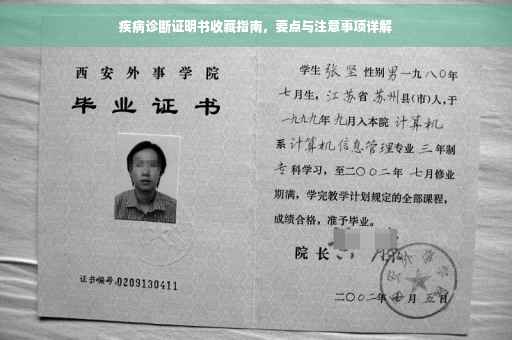 疾病诊断证明书收藏指南，要点与注意事项详解
西安外事学院
毕业证书
证书编号:0209130411
学生 张坚 性别 男 一九八0年
七月生，江苏省 苏州 县(市)人，于
一九九九年 九月入本院 计算机
系 计算机信息管理 专业 三 年制
专 科学习，至二〇〇二年 七月修业
期满，学完教学计划规定的全部课程，
成绩合格，准予毕业。
院长
二〇〇二年 月 五日